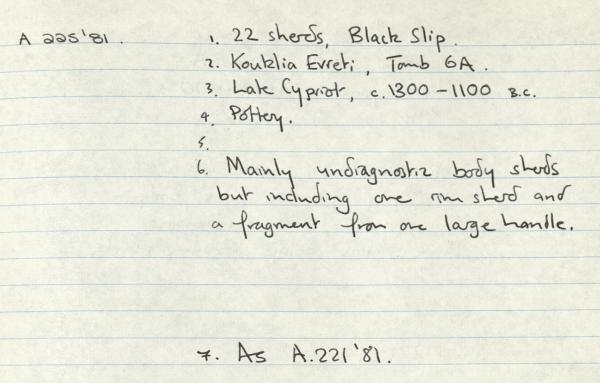 A 225'81.
1. 22 sherds, Black Slip.
2. Kouklia Evreti, Tomb 6A.
3. Late Cypriot, c.1300-1100 B.C.
4. Pottery.
5.
6. Mainly undiagnostic body sherds
but including one rim sherd and
a fragment from one large handle.
7. As A.221'81.